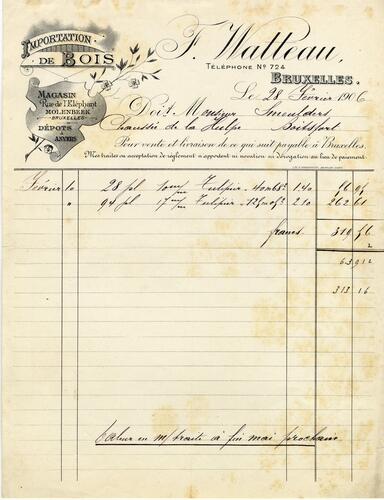 IMPORTATION
DE BOIS
F. Watteau,
TÉLÉPHONE Nº 724
BRUXELLES.
MAGASIN
Rue de l'Eléphant
MOLENBEEK
BRUXELLES
DÉPÔTS
À
ANVERS
Le 28 Février 1906
Doit Monsieur
Chaussée de la Hulpe Boitsfort
Pour vente et livraison de ce qui suit payable à Bruxelles.
Mes traites ou acceptation de réglement n'apportent ni novation ni dérogation au lieu de paiement.
Février 10 28 pl 10 m/m Tulipier 40m68 1.40 56 95
" 94 pl 17 m/m Tulipier 2.10 262 61
francs 319 56
2
6 39 12
313 16
Valeur en m/traite à fin mai prochain